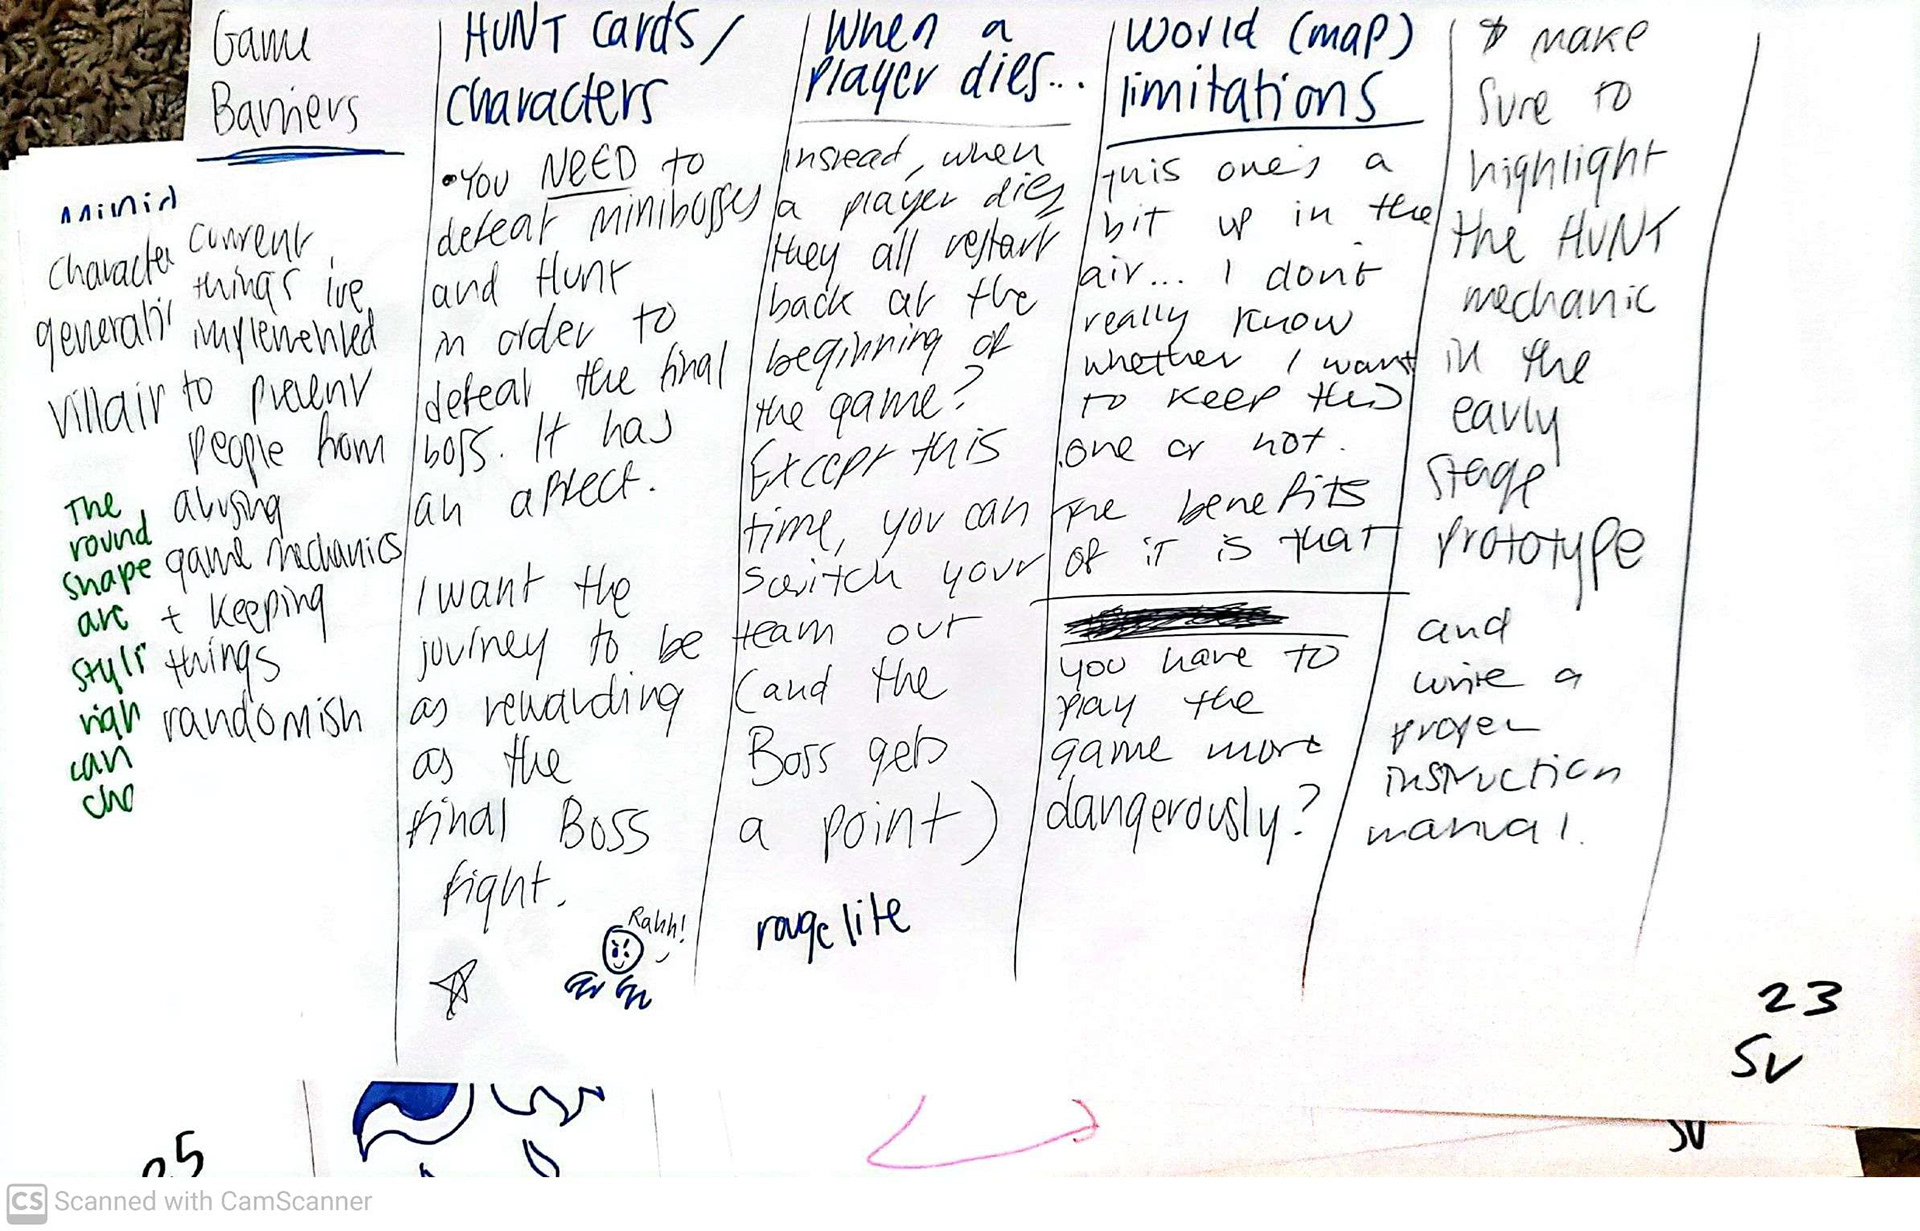 Game
Barriers
current
things ive
implemented
to prevent
people from
abusing
game mechanics
+ keeping
things
randomish
HUNT cards/
characters
•You NEED to
defeat minibosses
and Hunt
in order to
defeat the final
boss. It has
an affect.
I want the
journey to be
as rewarding
as the
final Boss
fight.
Rahh!
When a
player dies...
insread, when
a player dies
they all restart
back at the
beginning of
the game?
Except this
time, you can
switch your
team out
(and the
Boss gets
a point)
rougelite
World (map)
limitations
this one's a
bit up in the
air... I dont
really know
whether I want
to keep this
one or not.
The benefits
of it is that
you have to
play the
game more
dangerously?
* make
sure to
highlight
the HUNT
mechanic
in the
early
stage
prototype
and
write a
proper
instruction
manual.
23
SV
character
generati
villain
The
round
shape
are
styli
righ
can
cho
25
SV
CS Scanned with CamScanner